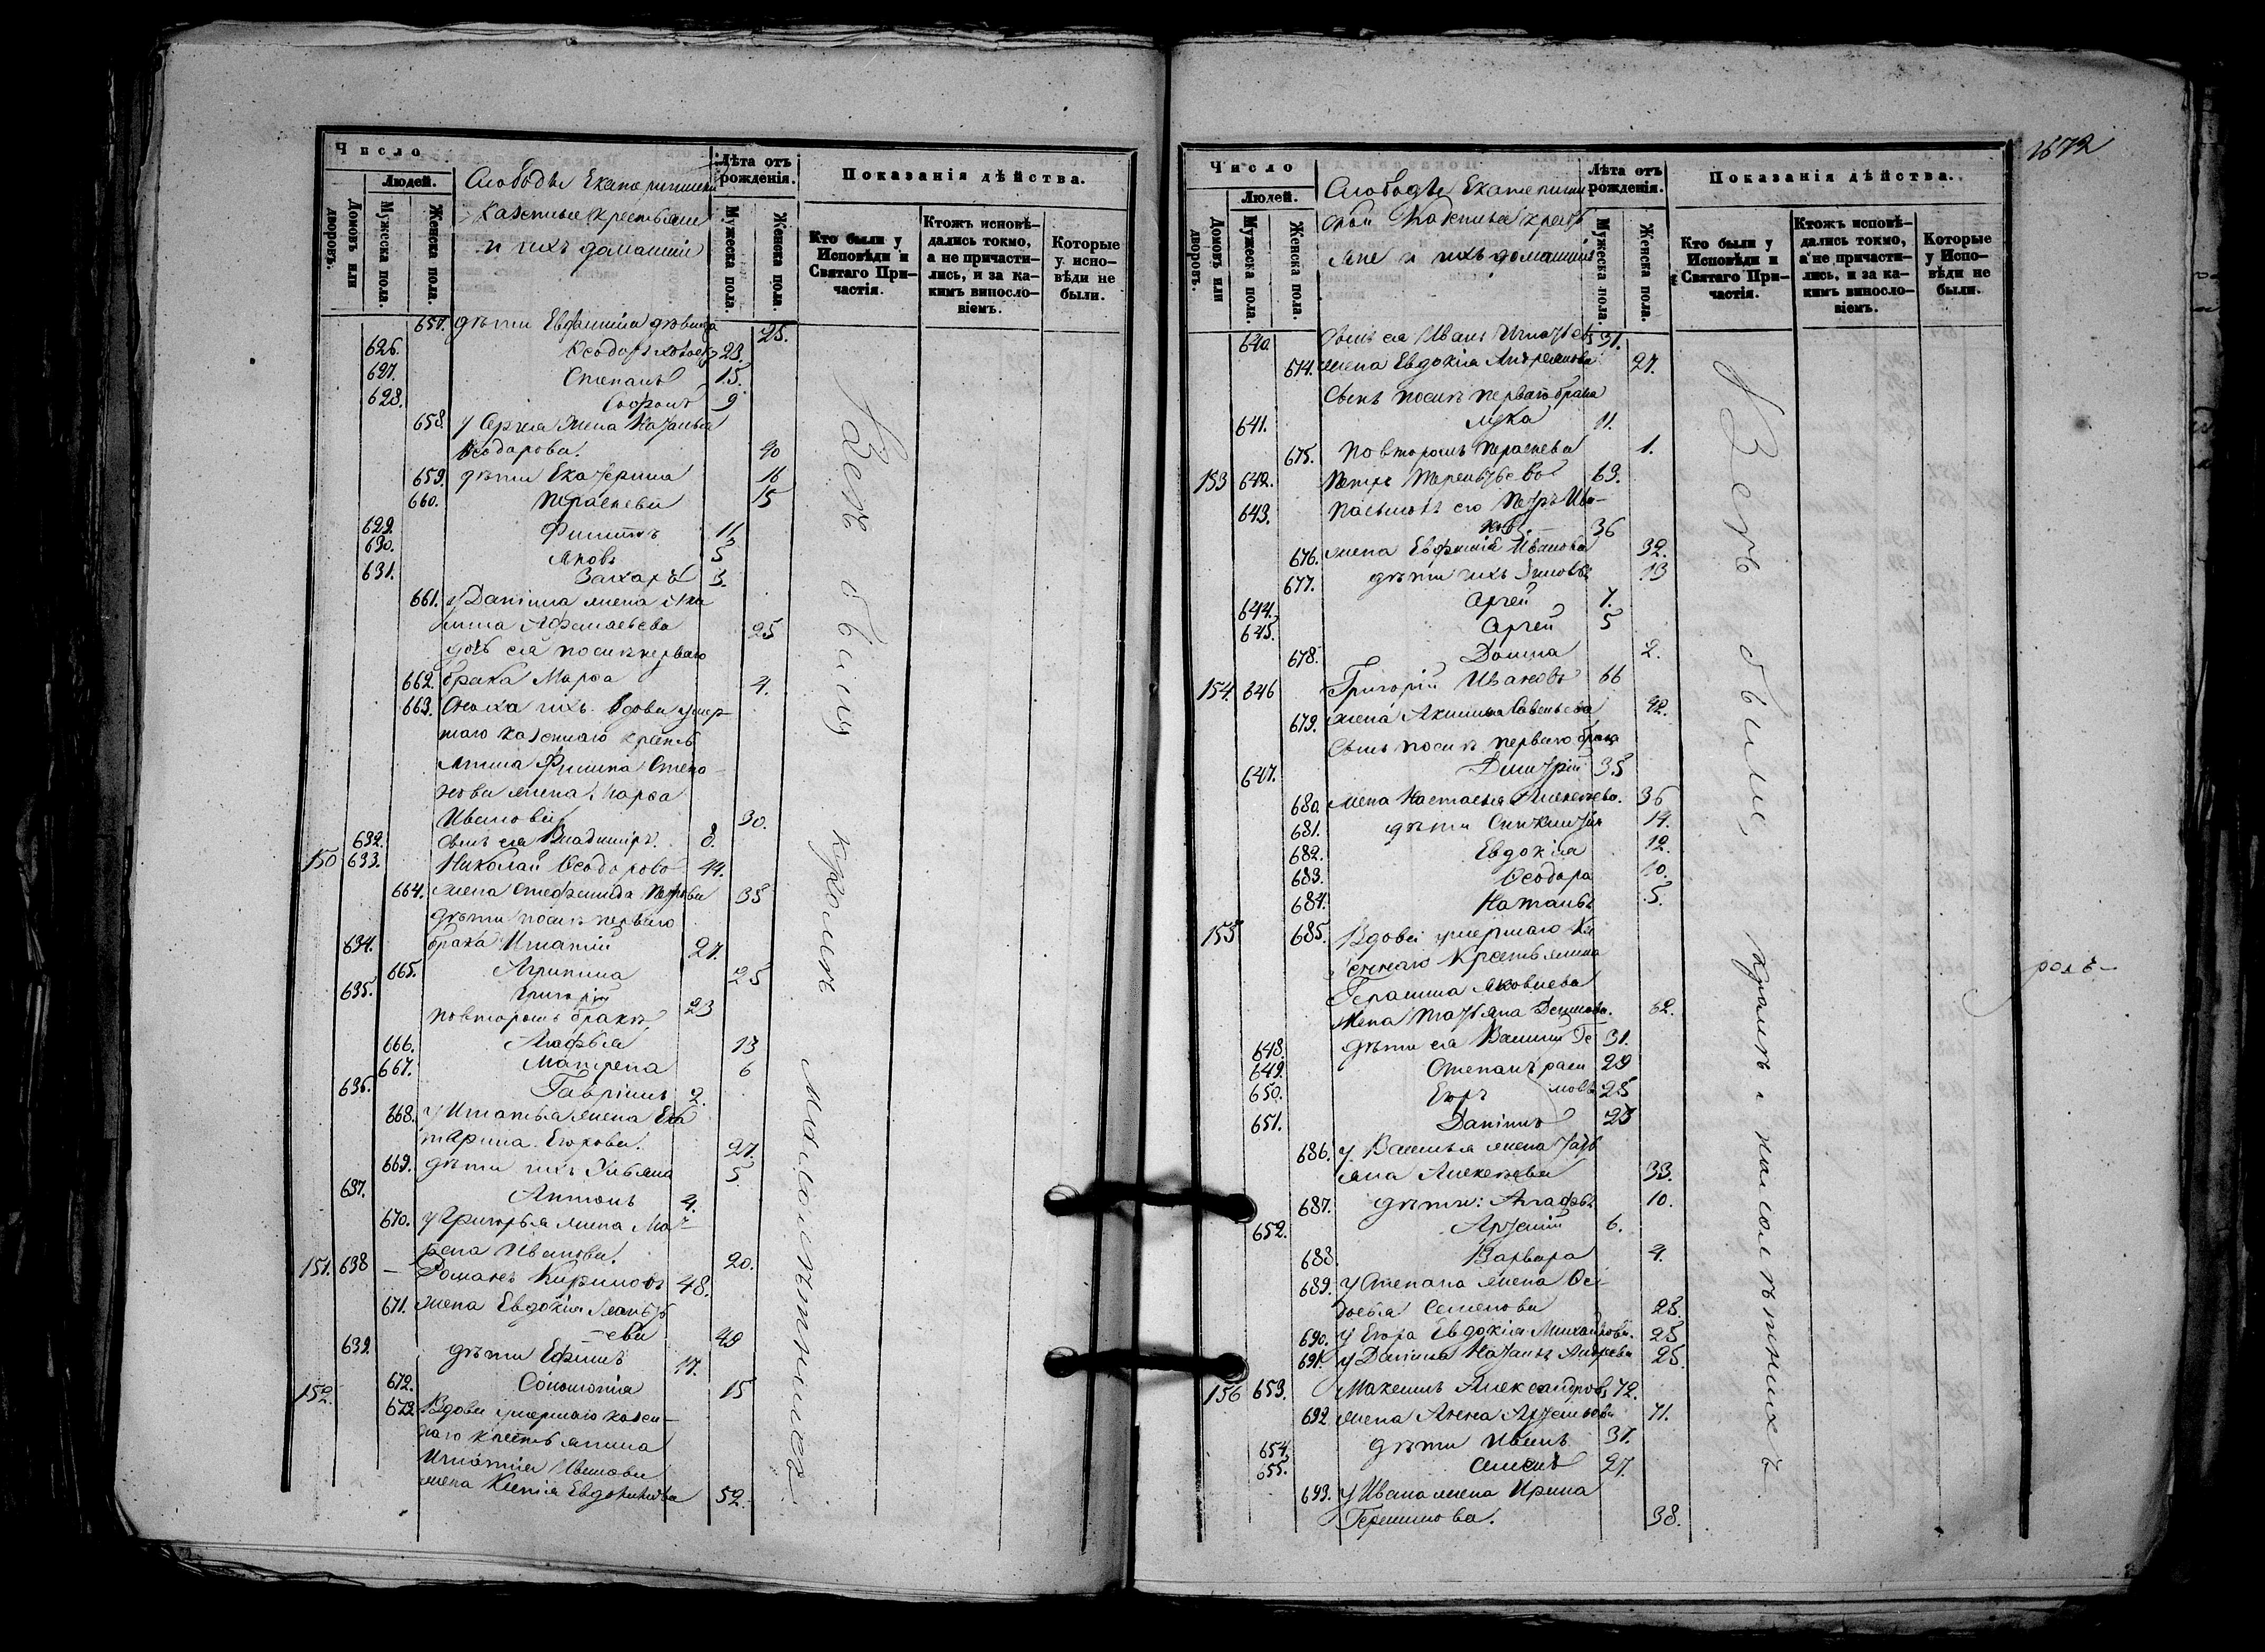 Число
Людей.
Домовъ или дворовъ.
Мужеска пола.
Женска пола.
Слободы
Казенные крестьяне
и ихъ домашніи
Лѣта отъ рожденія.
Мужеска пола.
Женска пола
Показанія дѣйства.
Кто были у Исповѣди и Святаго Причастія.
Ктожъ исповѣдались токмо, а не причастились, и за какимъ винословіемъ.
Которые у исповѣди не были.
657. дѣти Евфимія дѣвица 25.
626. Ѳеодоръ 23.
627. Степанъ 15.
628. Софонъ 9
658. у Сергѣя жена Наталья
Ѳеодорова. 40
659. дѣти Екатерина 16
660. Параскева 15
629. Филиппъ 11
630. Яковъ 5
631. Захаръ 3.
661. у Даніила жена
25
дочь ея послѣ перваго
662. брака Марѳа 4.
663. Сноха ихъ вдова умер-
шаго казеннаго кресть
янина Филипа Степа-
нова жена Марѳа
Иванова 30.
632. сынъ ея Владиміръ. 8.
150 633. Николай Ѳеодоровъ 44.
664. жена Стефанида Петрова 35
дѣти послѣ перваго
634. брака Игнатій 27.
665. Агрипина 25
635. Григорій 23
по второмъ бракѣ
666. Агафья 13
667. Матрена 6
636. Гавріилъ 2.
668. у Игнатья жена Ека
терина Егорова. 27.
669. дѣти ихъ Ульяна 5
637. Антонъ 4.
670. у Григорья жена Мат-
рена Иванова. 20.
151. 638 — Романъ 48.
671. жена Евдокія
49
639. дѣти Ефимъ 17.
672. Соломонія 15
152. 673. Вдова умершаго казен-
наго крестьянина
Игнатія Иванова
жена Ксенія Евдокимова 52.
Всѣ были кромѣ малолѣтнихъ
1672
Число
Людей.
Домовъ или дворовъ.
Мужеска пола.
Женска пола.
Слободы Екатеринин
ской Казенные кресть
яне и ихъ домашніи
Лѣта отъ рожденія.
Мужеска пола.
Женска пола.
Показанія дѣйства.
Кто были у Исповѣди и Святаго Причастія.
Ктожъ исповѣдались токмо, а не причастились, и за какимъ винословіемъ.
Которые у Исповѣди не были.
640. сынъ ея Иванъ Игнатьевъ 31.
674. жена Евдокія Андреянова 27.
Сынъ послѣ перваго брака
641. Лука 11.
675. по второмъ Параскева 1.
153 642. Петръ Терентьевъ 63.
643. пасынокъ его Петръ Ива-
новъ. 36
676. жена Евфимія Иванова 32.
677. дѣти ихъ 13
644. Сергѣй 7.
645. Сергѣй 5
678. Домна 2.
154. 646 Григорій Ивановъ 66
679. жена Акилина Савельева 42.
Сынъ послѣ перваго брака
647. Димитрій 35
680. жена Настасья Алексѣева. 36
681. дѣти Синклитія 14.
682. Евдокія 12.
683. Ѳеодора 10.
684. Наталья 5.
155 685. Вдова умершаго Ка
зеннаго Крестьянина
Герасима Яковлева
жена Татьяна 62.
648. дѣти ея Василій Ге 31.
649. Степанъ раси 29
650. Егоръ мовы 25
651. Даніилъ 23
686. у Василья жена Тать
яна Алексѣева 33.
687. дѣти: Агафья 10.
652. Арсеній 6.
688. Варвара 4.
689. у Степана жена Ѳео
досья Семенова 28.
690. у Егора Евдокія Михайлова. 25
691. у Даніила Наталья Андреева 25.
156 653. Максимъ Александровъ 72.
692 жена Анна 71.
654. дѣти Иванъ 37.
655. Семенъ 27.
693. у Ивана жена Ирина
Герасимова. 38.
Всѣ были, кромѣ малолѣтнихъ.